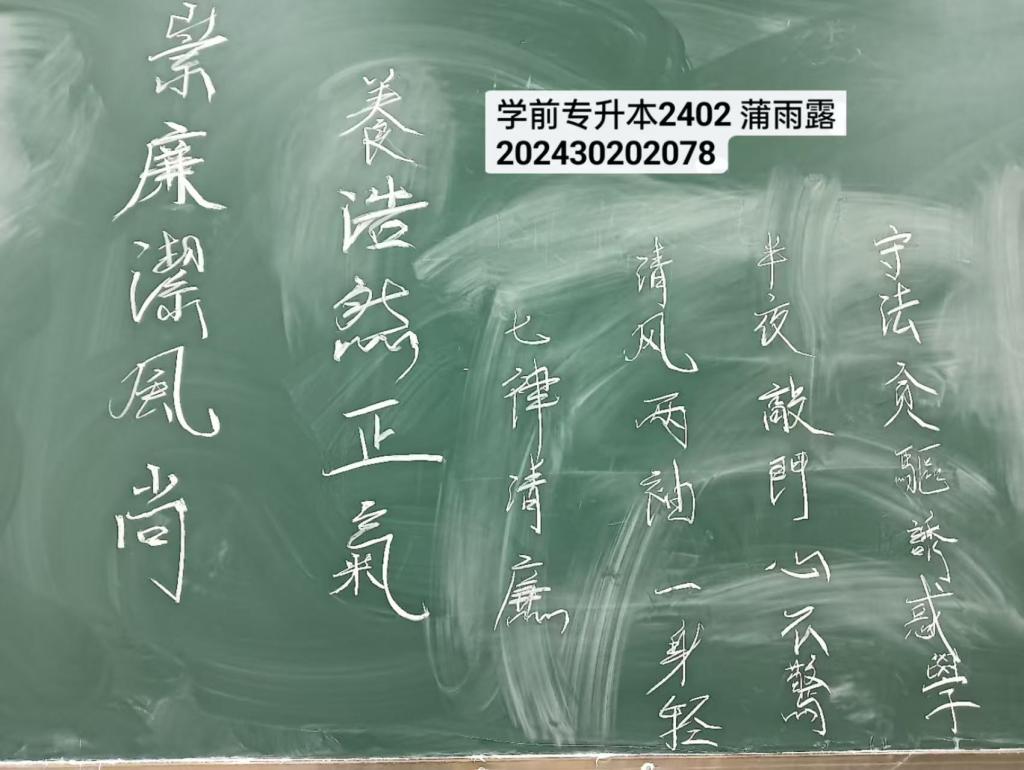 学前专升本2402 蒲雨露
202430202078
崇廉潔風尚
養浩然正氣
七律清廉
清风两袖一身轻
半夜敲門心不驚
守法貪驅誘惑學